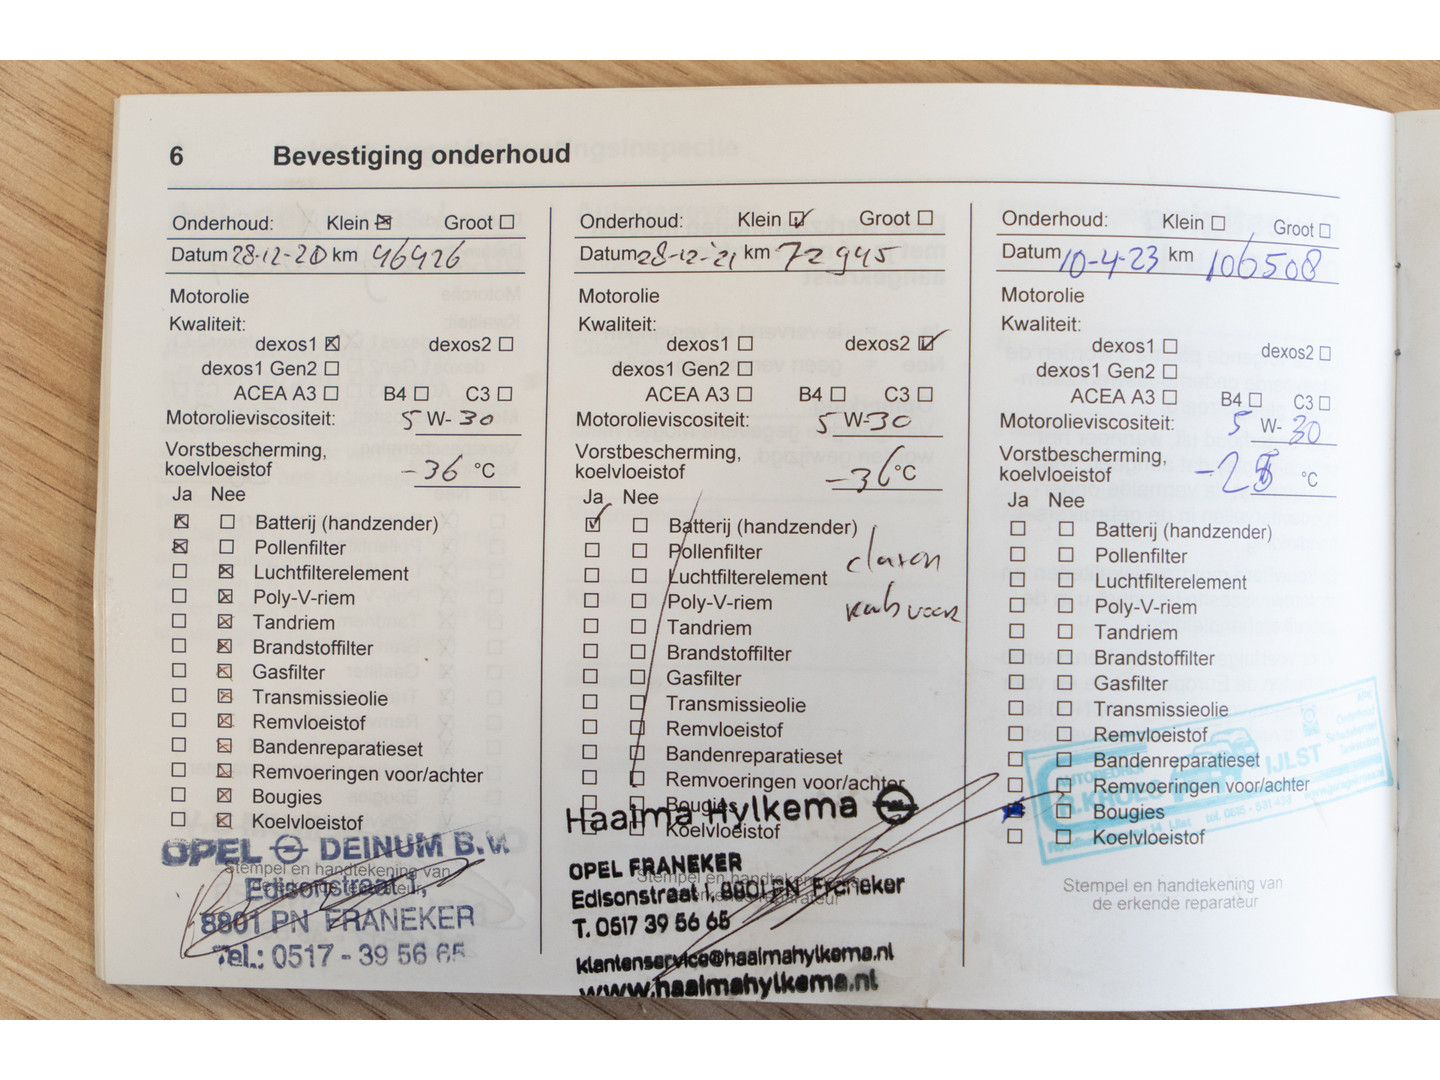 6 Bevestiging onderhoud
Onderhoud: Klein Groot
Datum 28-12-20 km 46426
Motorolie
Kwaliteit:
dexos1 dexos2
dexos1 Gen2
ACEA A3 B4 C3
Motorolieviscositeit: 5 W- 30
Vorstbescherming,
koelvloeistof -36 °C
Ja Nee
Batterij (handzender)
Pollenfilter
Luchtfilterelement
Poly-V-riem
Tandriem
Brandstoffilter
Gasfilter
Transmissieolie
Remvloeistof
Bandenreparatieset
Remvoeringen voor/achter
Bougies
Koelvloeistof
OPEL DEINUM B.V.
Stempel en handtekening van
de erkende reparateur
Edisonstraat 1,
8801 PN FRANEKER
Tel.: 0517 - 39 56 65
Onderhoud: Klein Groot
Datum 28-12-'21 km 72945
Motorolie
Kwaliteit:
dexos1 dexos2
dexos1 Gen2
ACEA A3 B4 C3
Motorolieviscositeit: 5 W-30
Vorstbescherming,
koelvloeistof -36 °C
Ja Nee
Batterij (handzender)
Pollenfilter
Luchtfilterelement
Poly-V-riem
Tandriem
Brandstoffilter
Gasfilter
Transmissieolie
Remvloeistof
Bandenreparatieset
Remvoeringen voor/achter
Bougies
Koelvloeistof
Haaima Hylkema
OPEL FRANEKER
Stempel en handtekening van
de erkende reparateur
Edisonstraat 1, 8801 PN Franeker
T. 0517 39 56 65
klantenservice@haaimahylkema.nl
www.haaimahylkema.nl
Onderhoud: Klein Groot
Datum 10-4-23 km 106508
Motorolie
Kwaliteit:
dexos1 dexos2
dexos1 Gen2
ACEA A3 B4 C3
Motorolieviscositeit: 5 W- 30
Vorstbescherming,
koelvloeistof °C
Ja Nee
Batterij (handzender)
Pollenfilter
Luchtfilterelement
Poly-V-riem
Tandriem
Brandstoffilter
Gasfilter
Transmissieolie
Remvloeistof
Bandenreparatieset
Remvoeringen voor/achter
Bougies
Koelvloeistof
AUTOBEDRIJF
IJLST
Stempel en handtekening van
de erkende reparateur